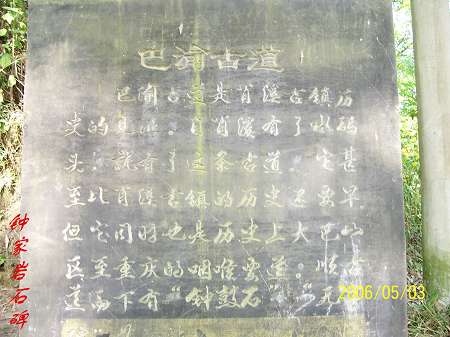 巴渝古道
巴渝古道是肖溪古镇历
史的见证。自肖溪有了水码
头,就有了这条古道。它甚
至比肖溪古镇的历史还要早。
但它同时也是历史上大巴山
区至重庆的咽喉要道。顺古
道而下有“钟鼓石”、“元
钟家岩石碑
2006/05/03